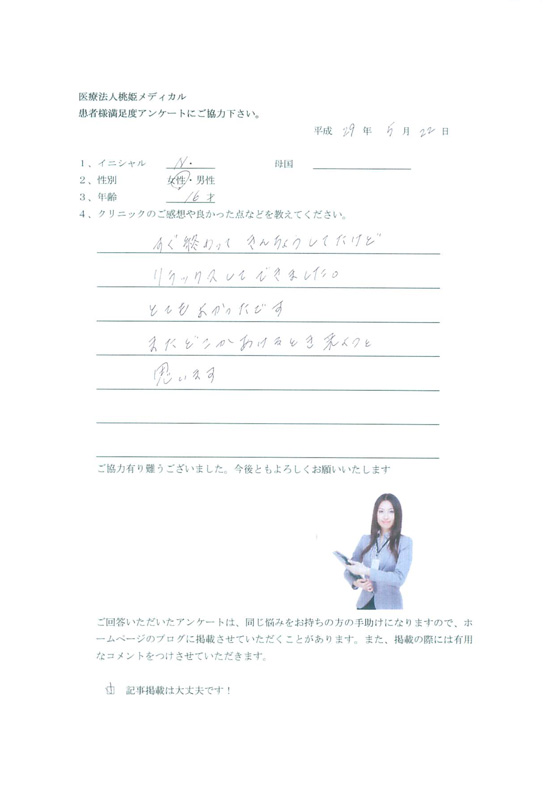 医療法人桃姫メディカル
患者様満足度アンケートにご協力下さい。
平成 29 年 5 月 22 日
1、イニシャル N・ 母国
2、性別 女性・男性
3、年齢 16才
4、クリニックのご感想や良かった点などを教えてください。
すぐ終わって きんちょうしてたけど
リラックスしてできました。
とてもよかったです
またどこかあけるとき来ようと
思います
ご協力有り難うございました。今後ともよろしくお願いいたします
ご回答いただいたアンケートは、同じ悩みをお持ちの方の手助けになりますので、ホ
ームページのブログに掲載させていただくことがあります。また、掲載の際には有用
なコメントをつけさせていただきます。
記事掲載は大丈夫です！